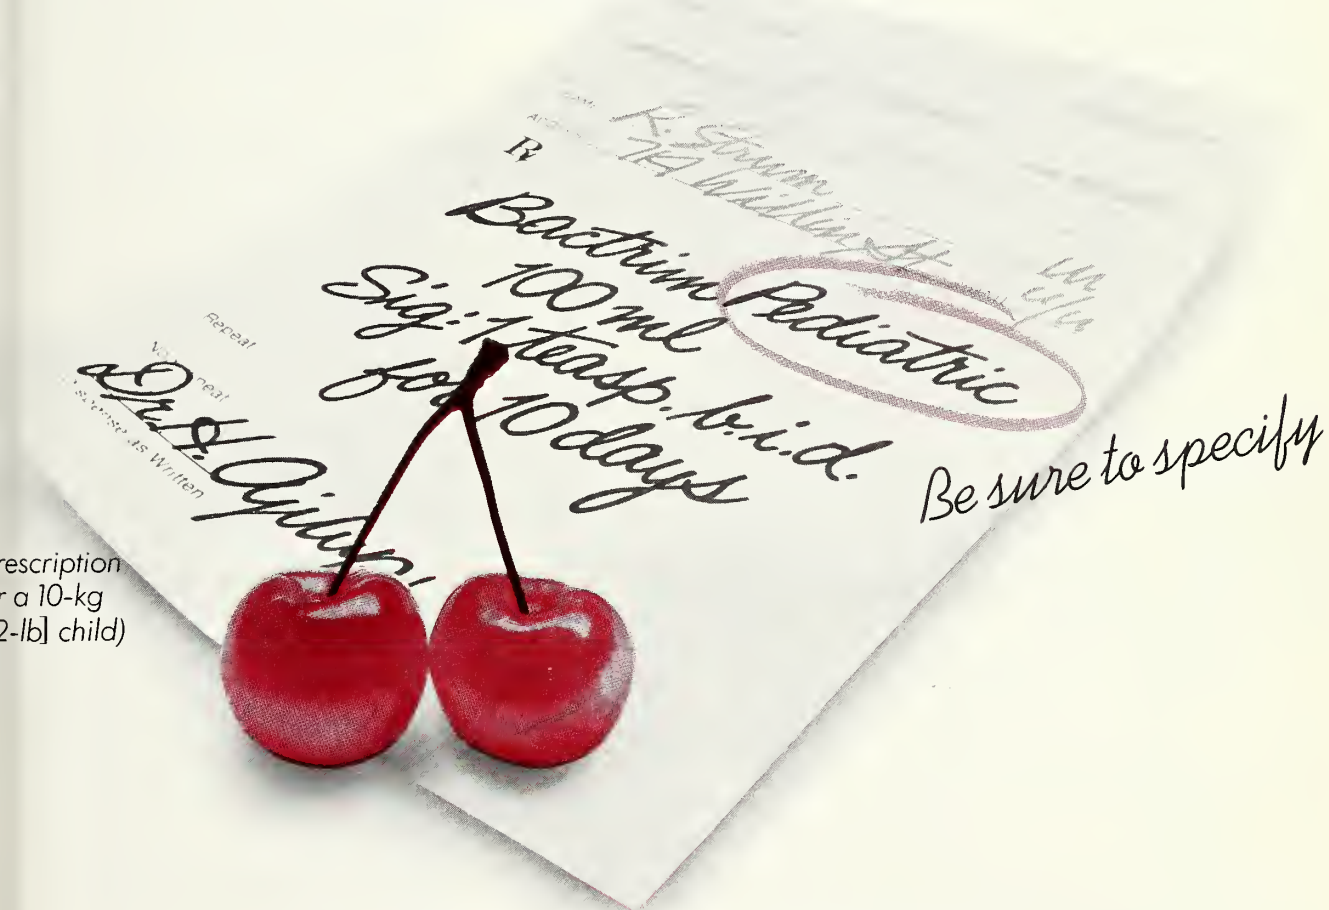 K. Strum
St
Rx
Bactrim Pediatric
100 ml
Sig: 1 teasp. b.i.d.
for 10 days
Repeat
Dr. H.
as Written
Be sure to specify
rescription
r a 10-kg
2-lb] child)